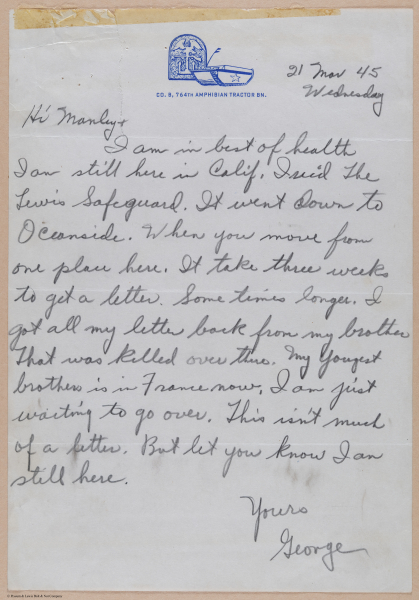 CO. B, 764TH AMPHIBIAN TRACTOR BN.
21 Mar 45
Wednesday
Hi Manley
I am in best of health
I am still here in Calif. I recied The
Lewis Safeguard. It went down to
Oceanside. When you move from
one place here. It take three weeks
to get a letter. Some times longer. I
got all my letter back from my brother
That was killed over thro. My yougest
brothers is in France now. I am just
waiting to go over. This isn't much
of a letter. But let you know I am
still here.
Yours
George